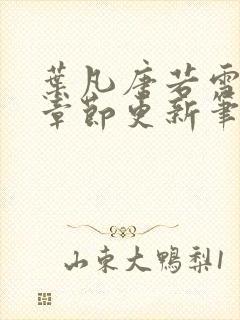 葉凡唐若雪
章節更新筆
山東大鴨梨1